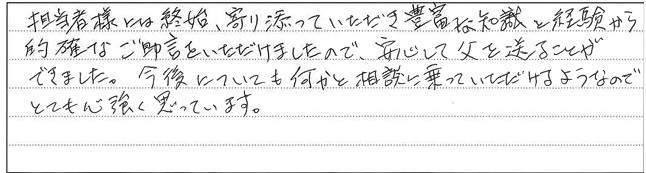 担当者様には終始、寄り添っていただき豊富な知識と経験から
的確なご助言をいただけましたので、安心して父を送ることが
できました。今後についても何かと相談に乗っていただけるようなので
とても心強く思っています。